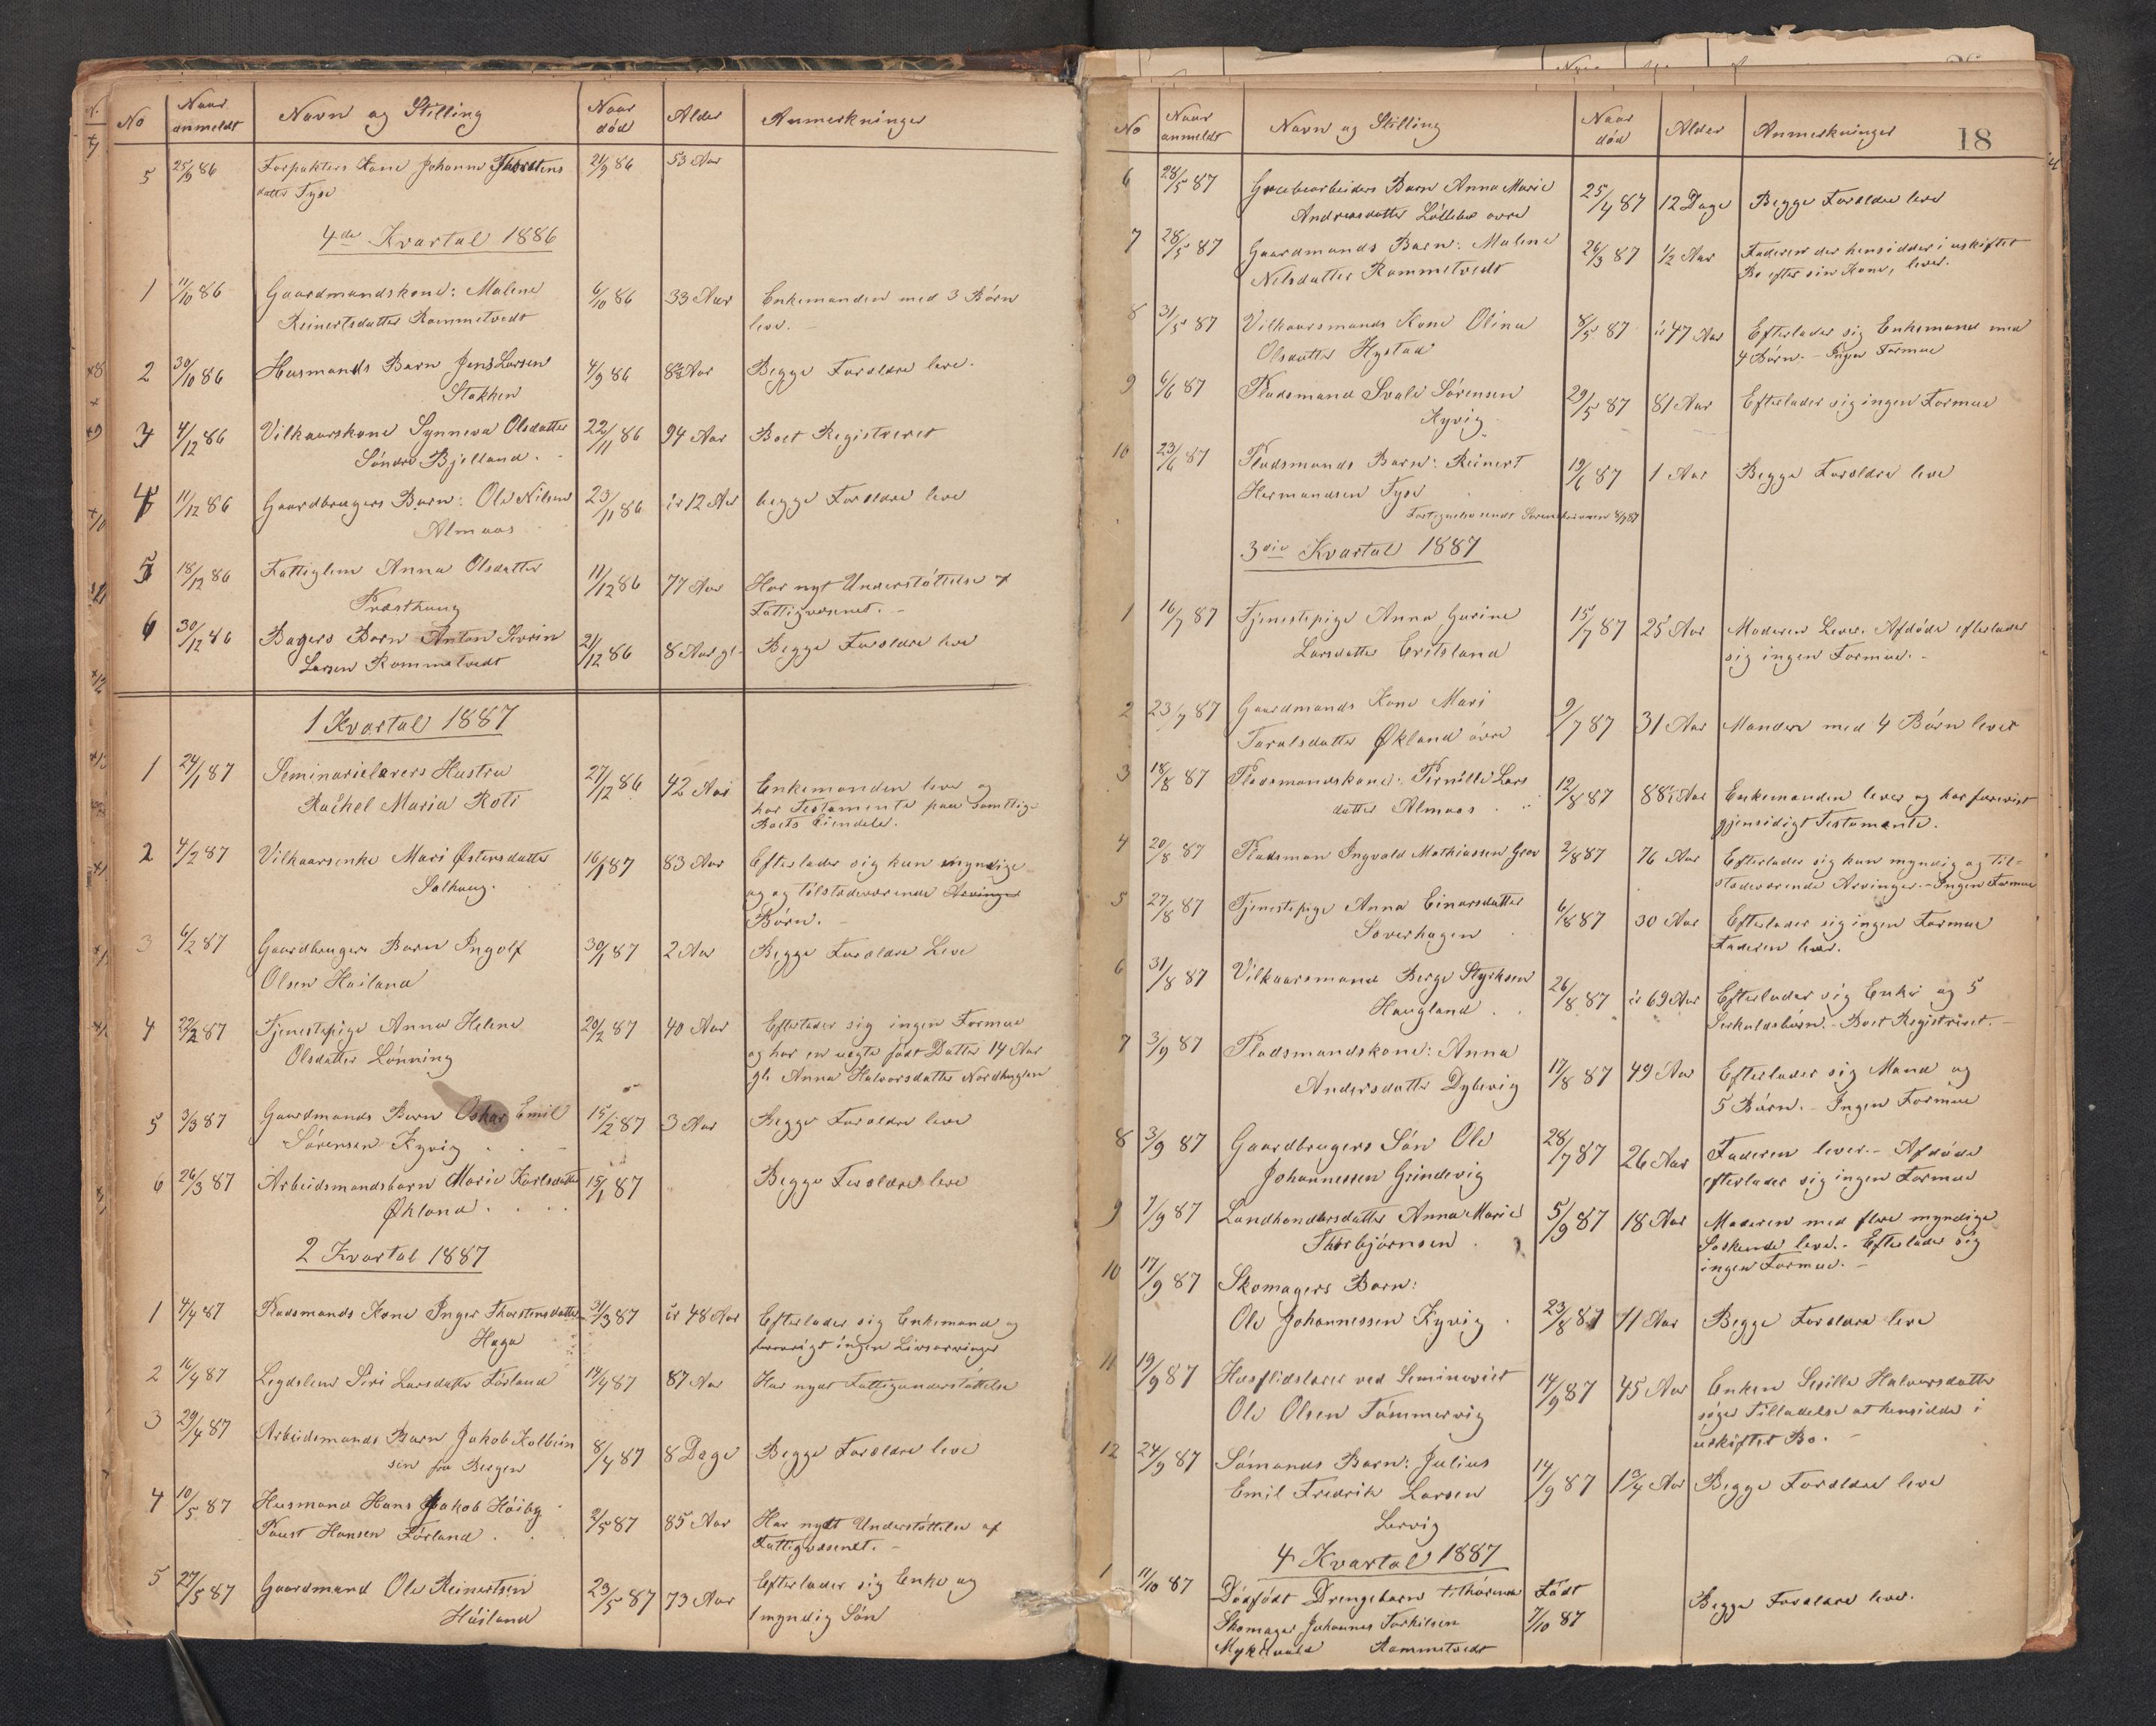 No
Naar anmeldt
Navn og Stilling
Naar død
Alder
Anmerkninger
5 25/9 86 Forpakters Kone Johanne Thorstens 21/9 86 53 Aar
datter Tyse
4de Kvartal 1886
1 11/10 86 Gaardmandskone: Malene 6/10 86 33 Aar Enkemanden med 3 Børn
Reinertsdatter Rommetvedt leve.
2 30/10 86 Husmands Barn Jens Larsen 4/9 86 Begge Forældre leve.
Stokken
3 4/12 86 Vilkaarskone Synneva Olsdatter 22/11 86 94 Aar Boet Registreret
Søndre Bjelland.
4 11/12 86 Gaardbrugers Barn: Ole Nilsen 23/11 86 ir 12 Aar begge Forældre leve
Almaas
5 18/12 86 Fattiglem Anna Olsdatter 11/12 86 77 Aar Har nyt Understøttelse af
Præsthaug Fattigvæsenet. -
6 30/12 86 Bagers Barn Anton Severin 21/12 86 8 Aar gl. Begge Forældre leve
Larsen Rommetvedt
1 Kvartal 1887
1 24/1 87 Seminarielærers Hustru 27/12 86 42 Aar Enkemanden leve og
Rachel Maria Koti har Testamente paa samtlige
Boets Eiendele.
2 4/2 87 Vilkaarsenke Mari Østensdatter 16/1 87 83 Aar Efterlader sig kun myndige
Solhaug. og og tilstedeværende Arvinger
Børn. -
3 6/2 87 Gaardbrugers Barn Ingolf 30/1 87 2 Aar Begge Forældre Leve
Olsen Høiland
4 22/2 87 Tjenestepige Anna Helene 20/2 87 40 Aar Efterlader sig ingen Formue
Olsdatter Lønning og har en uægte født Datter 14 Aar
gl. Anna Halvorsdatter Nordhuglen
5 3/3 87 Gaardmands Barn Oskar Emil 15/2 87 3 Aar Begge Forældre leve
Sørensen Kyvig
6 26/3 87 Arbeidsmandsbarn Marie Karlsdatter 15/1 87 Begge Forældre leve
Økland.
2 Kvartal 1887
1 4/4 87 Pladsmands Kone Inger Thorstensdatter 31/3 87 ir 48 Aar Efterlader sig Enkemand og
Haga forøvrigt ingen Livsarvinger
2 16/4 87 Legdslem Siri Larsdatter Førland 14/4 87 87 Aar Har nydt Fattigunderstøttelse
3 29/4 87 Arbeidsmands Barn Jakob Kolbein 8/4 87 8 Dage Begge Forældre leve
sen fra Bergen
4 10/5 87 Husmand Hans Jakob Høiby 2/5 87 85 Aar Har nydt Understøttelse af
Faust Hansen Førland. Fattigvæsenet. -
5 27/5 87 Gaardmand Ole Reinertsen 23/5 87 73 Aar Efterlader sig Enke og
Høiland 1 myndig Søn
18
No
Naar anmeldt
Navn og Stilling
Naar død
Alder
Anmerkninger
6 28/5 87 Grubearbeiders Barn Anna Marie 25/4 87 12 Dage Begge Forældre leve
Andreasdatter øvre
7 28/5 87 Gaardmands Barn: Malene 26/3 87 1/2 Aar Faderen der hensidder i uskiftet
Nilsdatter Rommetvedt Bo efter sin Kone, lever.
8 31/5 87 Vilkaarsmands Kone Olina 8/5 87 ir 47 Aar Efterlader sig Enkemand med
Olsdatter Hystad 4 Børn. - Ingen Formue
9 6/6 87 Pladsmand Svale Sørensen 29/5 87 81 Aar Efterlader sig ingen Formue
Kyvig.
10 23/6 87 Pladsmands Barn: Reinert 19/6 87 1 Aar Begge Forældre leve
Hermundsen Tyse
Fortegnelse sendt Sorenskriveren 8/7 87
3die Kvartal 1887
1 16/7 87 Tjenestepige Anna Gurine 15/7 87 25 Aar Moderen Lever. Afdøde efterlader
Larsdatter Eritsland sig ingen Formue. -
2 23/7 87 Gaardmands Kone Mari 9/7 87 31 Aar Manden med 4 Børn lever
Taraldsdatter Økland øvre
3 18/8 87 Pladsmandskone: Pernille Lars 12/8 87 Enkemanden lever og har forevist
datter Almaas gjensidigt Testamente.
4 20/8 87 Pladsman Ingvald Mathiassen Grov 2/8 87 76 Aar Efterlader sig kun myndig og til-
stedeværende Arvinger. - Ingen Formue
5 27/8 87 Tjenestepige Anna Einarsdatter 6/8 87 30 Aar Efterlader sig ingen Formue
Soverhagen Faderen lever.
6 31/8 87 Vilkaarsmand Berge Styrksen 26/8 87 ir 69 Aar Efterlader sig Enke og 5
Haugland Serkuldsbørn. - Boet Registreret. -
7 3/9 87 Pladsmandskone: Anna 17/8 87 49 Aar Efterlader sig Mand og
Andersdatter Dybevig 5 Børn. - Ingen Formue
8 3/9 87 Gaardbrugers Søn Ole 28/7 87 26 Aar Faderen lever. - Afdøde
Johannessen Grindevig efterlader sig ingen Formue
9 7/9 87 Landhandlersdatter Anna Marie 5/9 87 18 Aar Moderen med flere myndige
Thorbjørnsen Søskende leve. - Efterlader sig
ingen Formue. -
10 17/9 87 Skomagers Barn:
Ole Johannessen Kyvig 23/8 87 11 Aar Begge Forældre leve
11 19/9 87 Husflidslærer ved Seminariet 14/9 87 45 Aar Enken Sesilla Halvorsdatter
Ole Olsen Tømmervig søger Tilladelse at hensidde i
uskiftet Bo. -
12 24/9 87 Sømands Barn: Julius 14/9 87 1 3/4 Aar Begge Forældre leve
Emil Fredrik Larsen
Lervig
4 Kvartal 1887
1 11/10 87 Dødfødt Drengebarn tilhørende Født Begge Forældre lever.
Skomager Johannes Torkilsen 7/10 87
Myklevold Rommetvedt